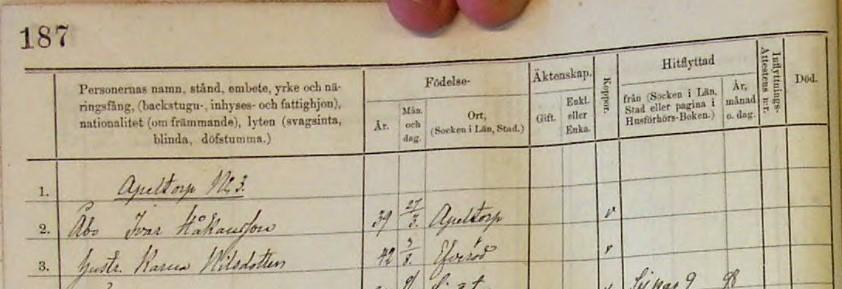 187
Personernas namn, stånd, embete, yrke och nä-
ringsfång, (backstugu-, inhyses- och fattighjon),
nationalitet (om främmande), lyten (svagsinta,
blinda, döfstumma.)
Födelse-
År.
Mån.
och
dag.
Ort,
(Socken i Län, Stad.)
Äktenskap.
Gift.
Enkl.
eller
Enka.
Koppor.
Hitflyttad
från (Socken i Län,
Stad eller pagina i
Husförhörs-Boken.)
År,
månad
o. dag.
Inflyttnings-
Attestens n:r.
Död.
1. Apeltorp No 3.
2. Åbo Ivar Håkansson 39 27/3. Apeltorp v
3. Hustr. Karna Nilsdotter 42 Efveröd v
98